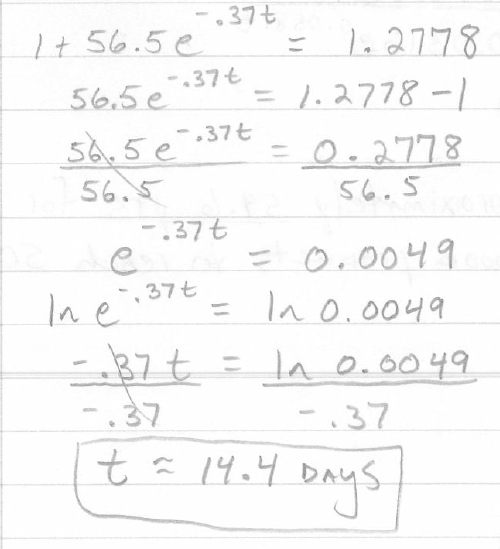 1 + 56.5e^-.37t = 1.2778
56.5e^-.37t = 1.2778 - 1
56.5e^-.37t / 56.5 = 0.2778 / 56.5
e^-.37t = 0.0049
ln e^-.37t = ln 0.0049
-.37t / -.37 = ln 0.0049 / -.37
t ≈ 14.4 DAYS